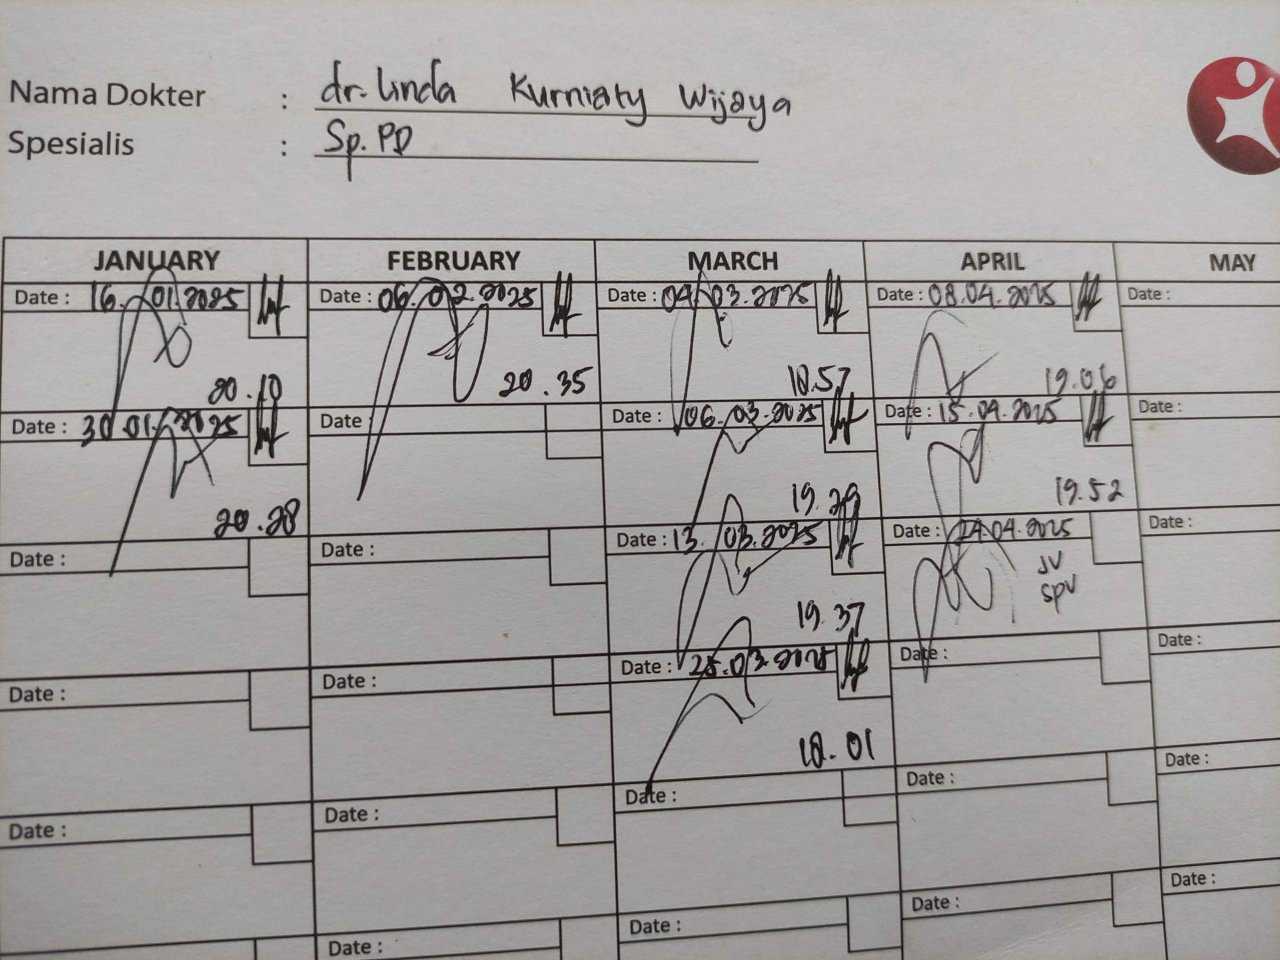 Nama Dokter : dr. Linda Kurniaty Wijaya
Spesialis : Sp. PD
JANUARY FEBRUARY MARCH APRIL MAY
Date : 16.01.2025 Date : 06.02.2025 Date : 04.03.2025 Date : 08.04.2025 Date :
20.10 20.35 18.57 19.06
Date : 30.01.2025 Date : Date : 06.03.2025 Date : 15.04.2025 Date :
20.28 19.29 19.52
Date : Date : Date : 13.03.2025 Date : 24.04.2025 Date :
JV
SPV
19.37
Date : Date : Date : 25.03.2025 Date : Date :
18.01
Date : Date : Date : Date : Date :
Date : Date : Date : Date :